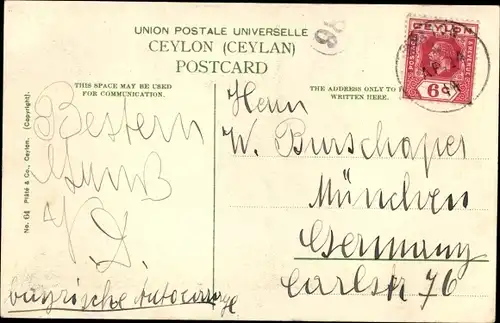 UNION POSTALE UNIVERSELLE
CEYLON (CEYLAN)
POSTCARD
THIS SPACE MAY BE USED
FOR COMMUNICATION.
THE ADDRESS ONLY TO
WRITTEN HERE.
CEYLON
POSTAGE
REVENUE
6c
No. 64 Plâté & Co., Ceylon. (Copyright).
Besten
Gruß
Herrn
W. Burschaper
München
Germany
Carlstr 76
bayrische